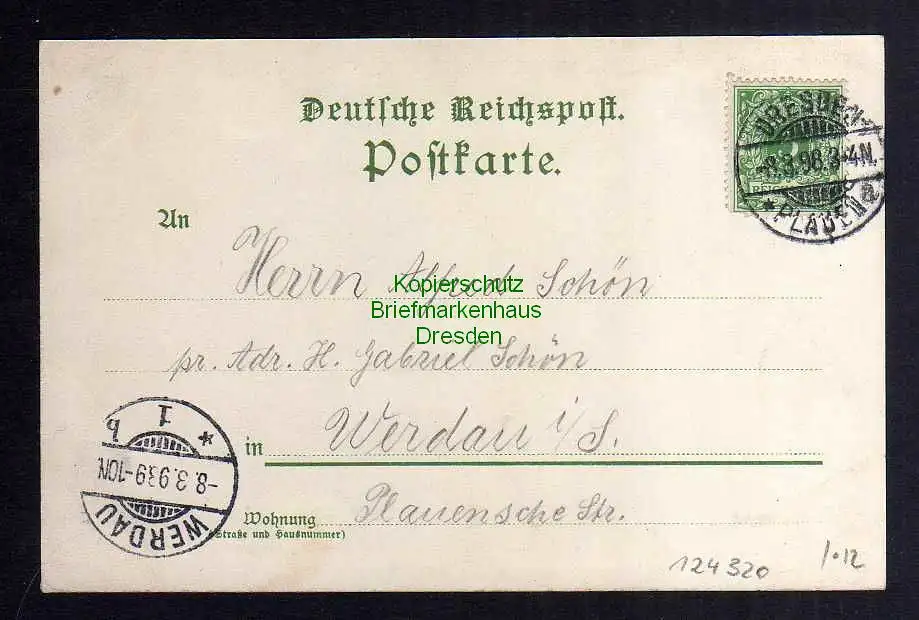 Deutsche Reichspost.
Postkarte.
DRESDEN-
-8.3.98.3-4N.
* PLAUEN a
An
Herrn Alfred Schön
Kopierschutz
Briefmarkenhaus
Dresden
pr. Adr. H. Gabriel Schön
in Werdau i/S.
WERDAU
-8.3.9 8 9-10N.
* 1 b
Wohnung Plauensche Str.
(Straße und Hausnummer)
124320
1.12